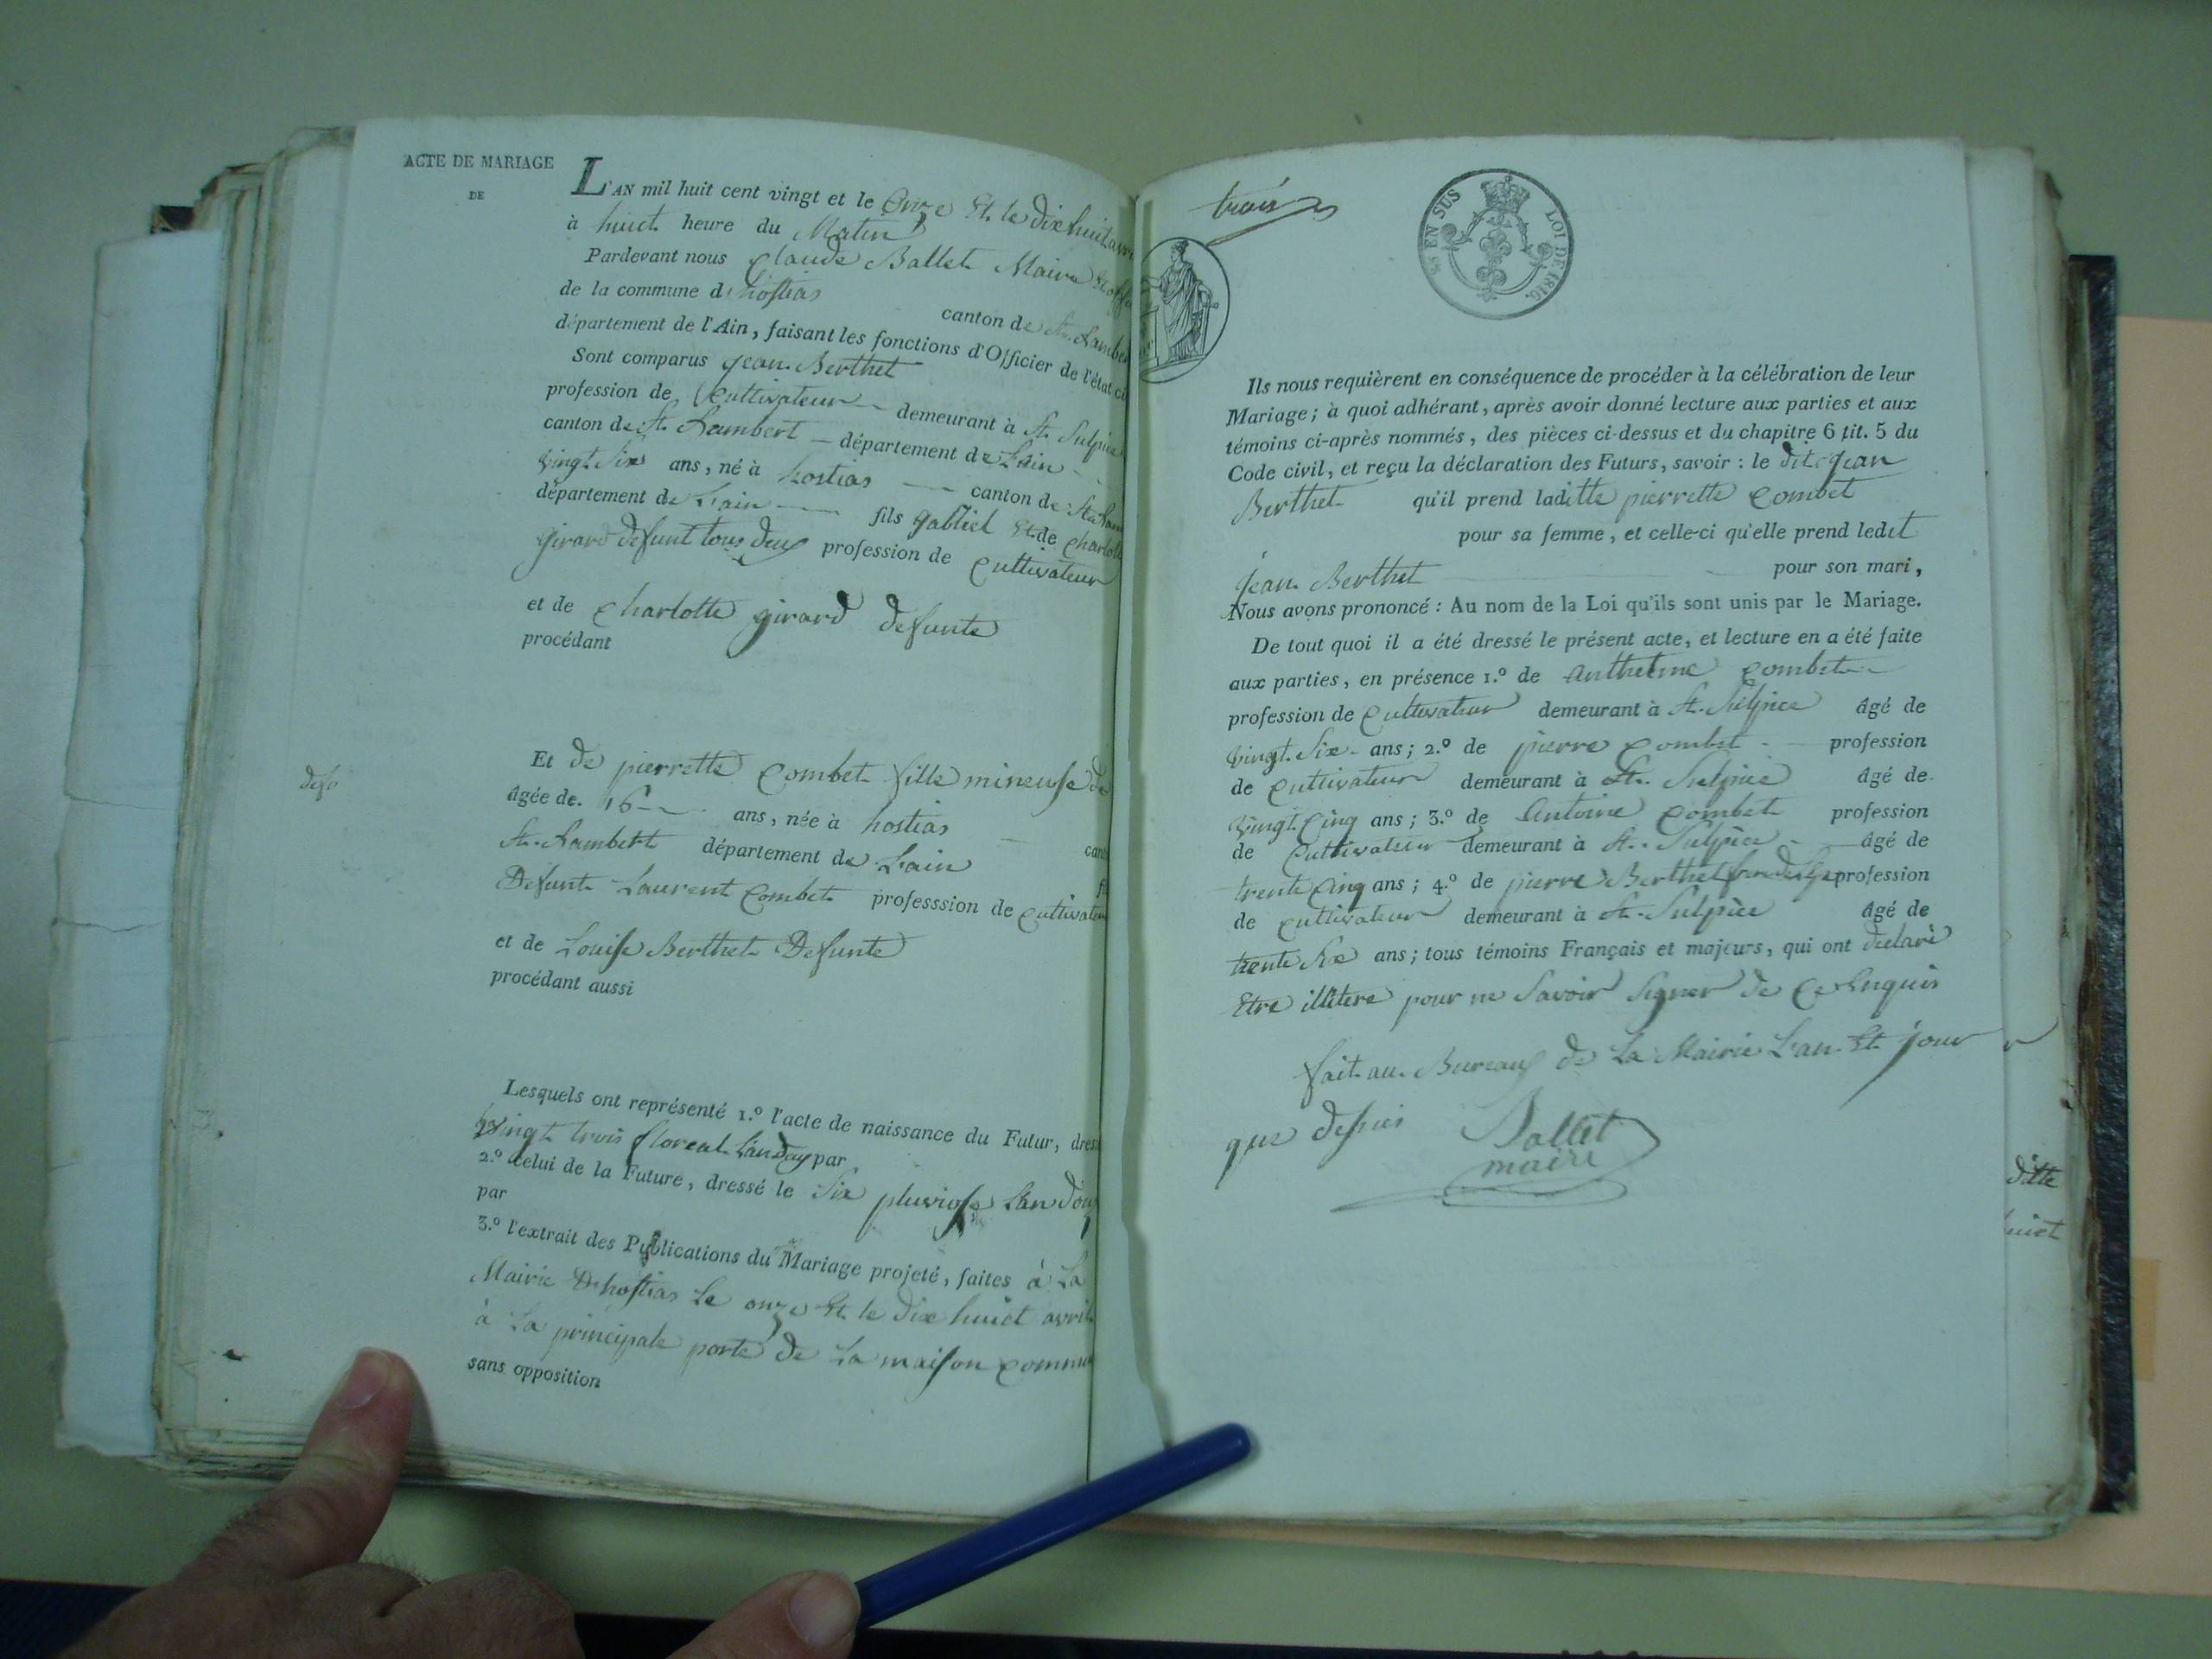 ACTE DE MARIAGE
DE
L'AN mil huit cent vingt et le Onze Et le dix huit avr
à huict heure du Matin
Pardevant nous Claude Ballet Maire
de la commune d'hostias canton de St. Lambe
département de l'Ain, faisant les fonctions d'Officier de l'état ci
Sont comparus Jean Berthet
profession de Cultivateur demeurant à St. Sulpice
canton de St. Rambert département de Lain
vingt Six ans, né à hostias canton de St. Ram
département de Lain fils gabliel Et de Charlott
girard defunt tous deux profession de Cultivateur
et de Charlotte girard defunte
procédant
Et de pierrette Combet fille mineuse de
defo
âgée de 16 ans, née à hostias
cant
St. Rambert département de Lain
fi
Defunt Laurent Combet professsion de Cultivateu
et de Louise Berthet Defunte
procédant aussi
Lesquels ont représenté 1.º l'acte de naissance du Futur, dres
vingt trois floreal Lan deux par
2.º celui de la Future, dressé le Six pluviose Lan douz
par
3.º l'extrait des Publications du Mariage projeté, faites à La
Mairie D'hostias Le onze Et le dix huict avril
à La principale porte de La maison Commu
sans opposition
trois
EN SUS LOI DE 1816.
Ils nous requièrent en conséquence de procéder à la célébration de leur
Mariage; à quoi adhérant, après avoir donné lecture aux parties et aux
témoins ci-après nommés, des pièces ci-dessus et du chapitre 6 tit. 5 du
Code civil, et reçu la déclaration des Futurs, savoir : le dit Jean
Berthet qu'il prend laditte pierrette Combet
pour sa femme, et celle-ci qu'elle prend ledit
Jean Berthet pour son mari,
Nous avons prononcé : Au nom de la Loi qu'ils sont unis par le Mariage.
De tout quoi il a été dressé le présent acte, et lecture en a été faite
aux parties, en présence 1.º de Anthelme Combet
profession de Cultivateur demeurant à St. Sulpice âgé de
vingt Six ans; 2.º de pierre Combet profession
de Cultivateur demeurant à St. Sulpice âgé de
vingt Cinq ans; 3.º de Antoine Combet profession
de Cultivateur demeurant à St. Sulpice âgé de
trente Cinq ans; 4.º de pierre Berthet profession
de Cultivateur demeurant à St. Sulpice âgé de
trente Six ans; tous témoins Français et majeurs, qui ont declaré
Etre illitere pour ne Savoir Signer de Ce Enquis
fait au Bureau de La Mairie L'an Et jour
que dessus Ballet
maire
ditte
huict